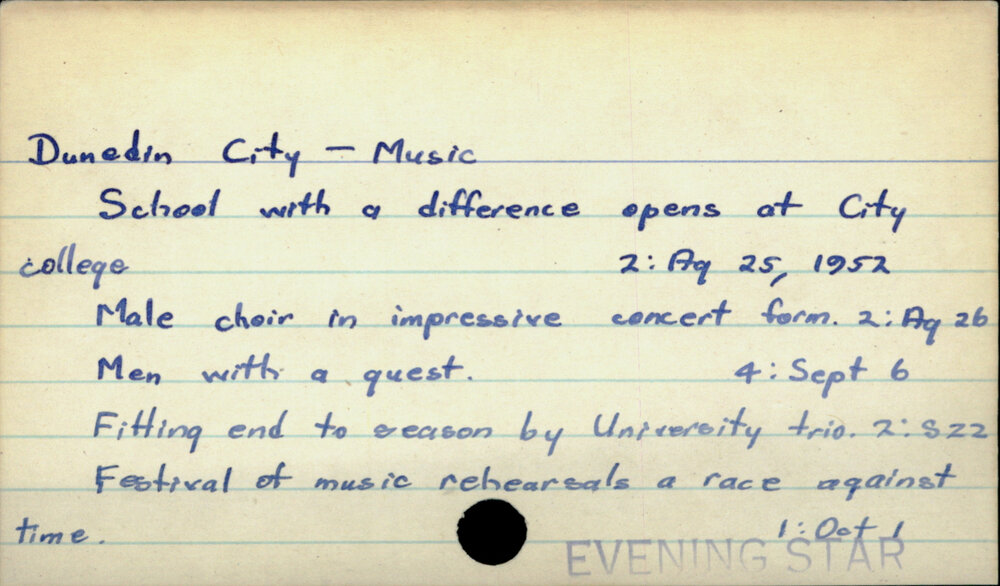 Dunedin City – Music
School with a difference opens at City
college 2: Ag 25, 1952
Male choir in impressive concert form. 2: Ag 26
Men with a quest. 4: Sept 6
Fitting end to season by University trio. 2: S22
Festival of music rehearsals a race against
time. 1: Oct 1
EVENING STAR